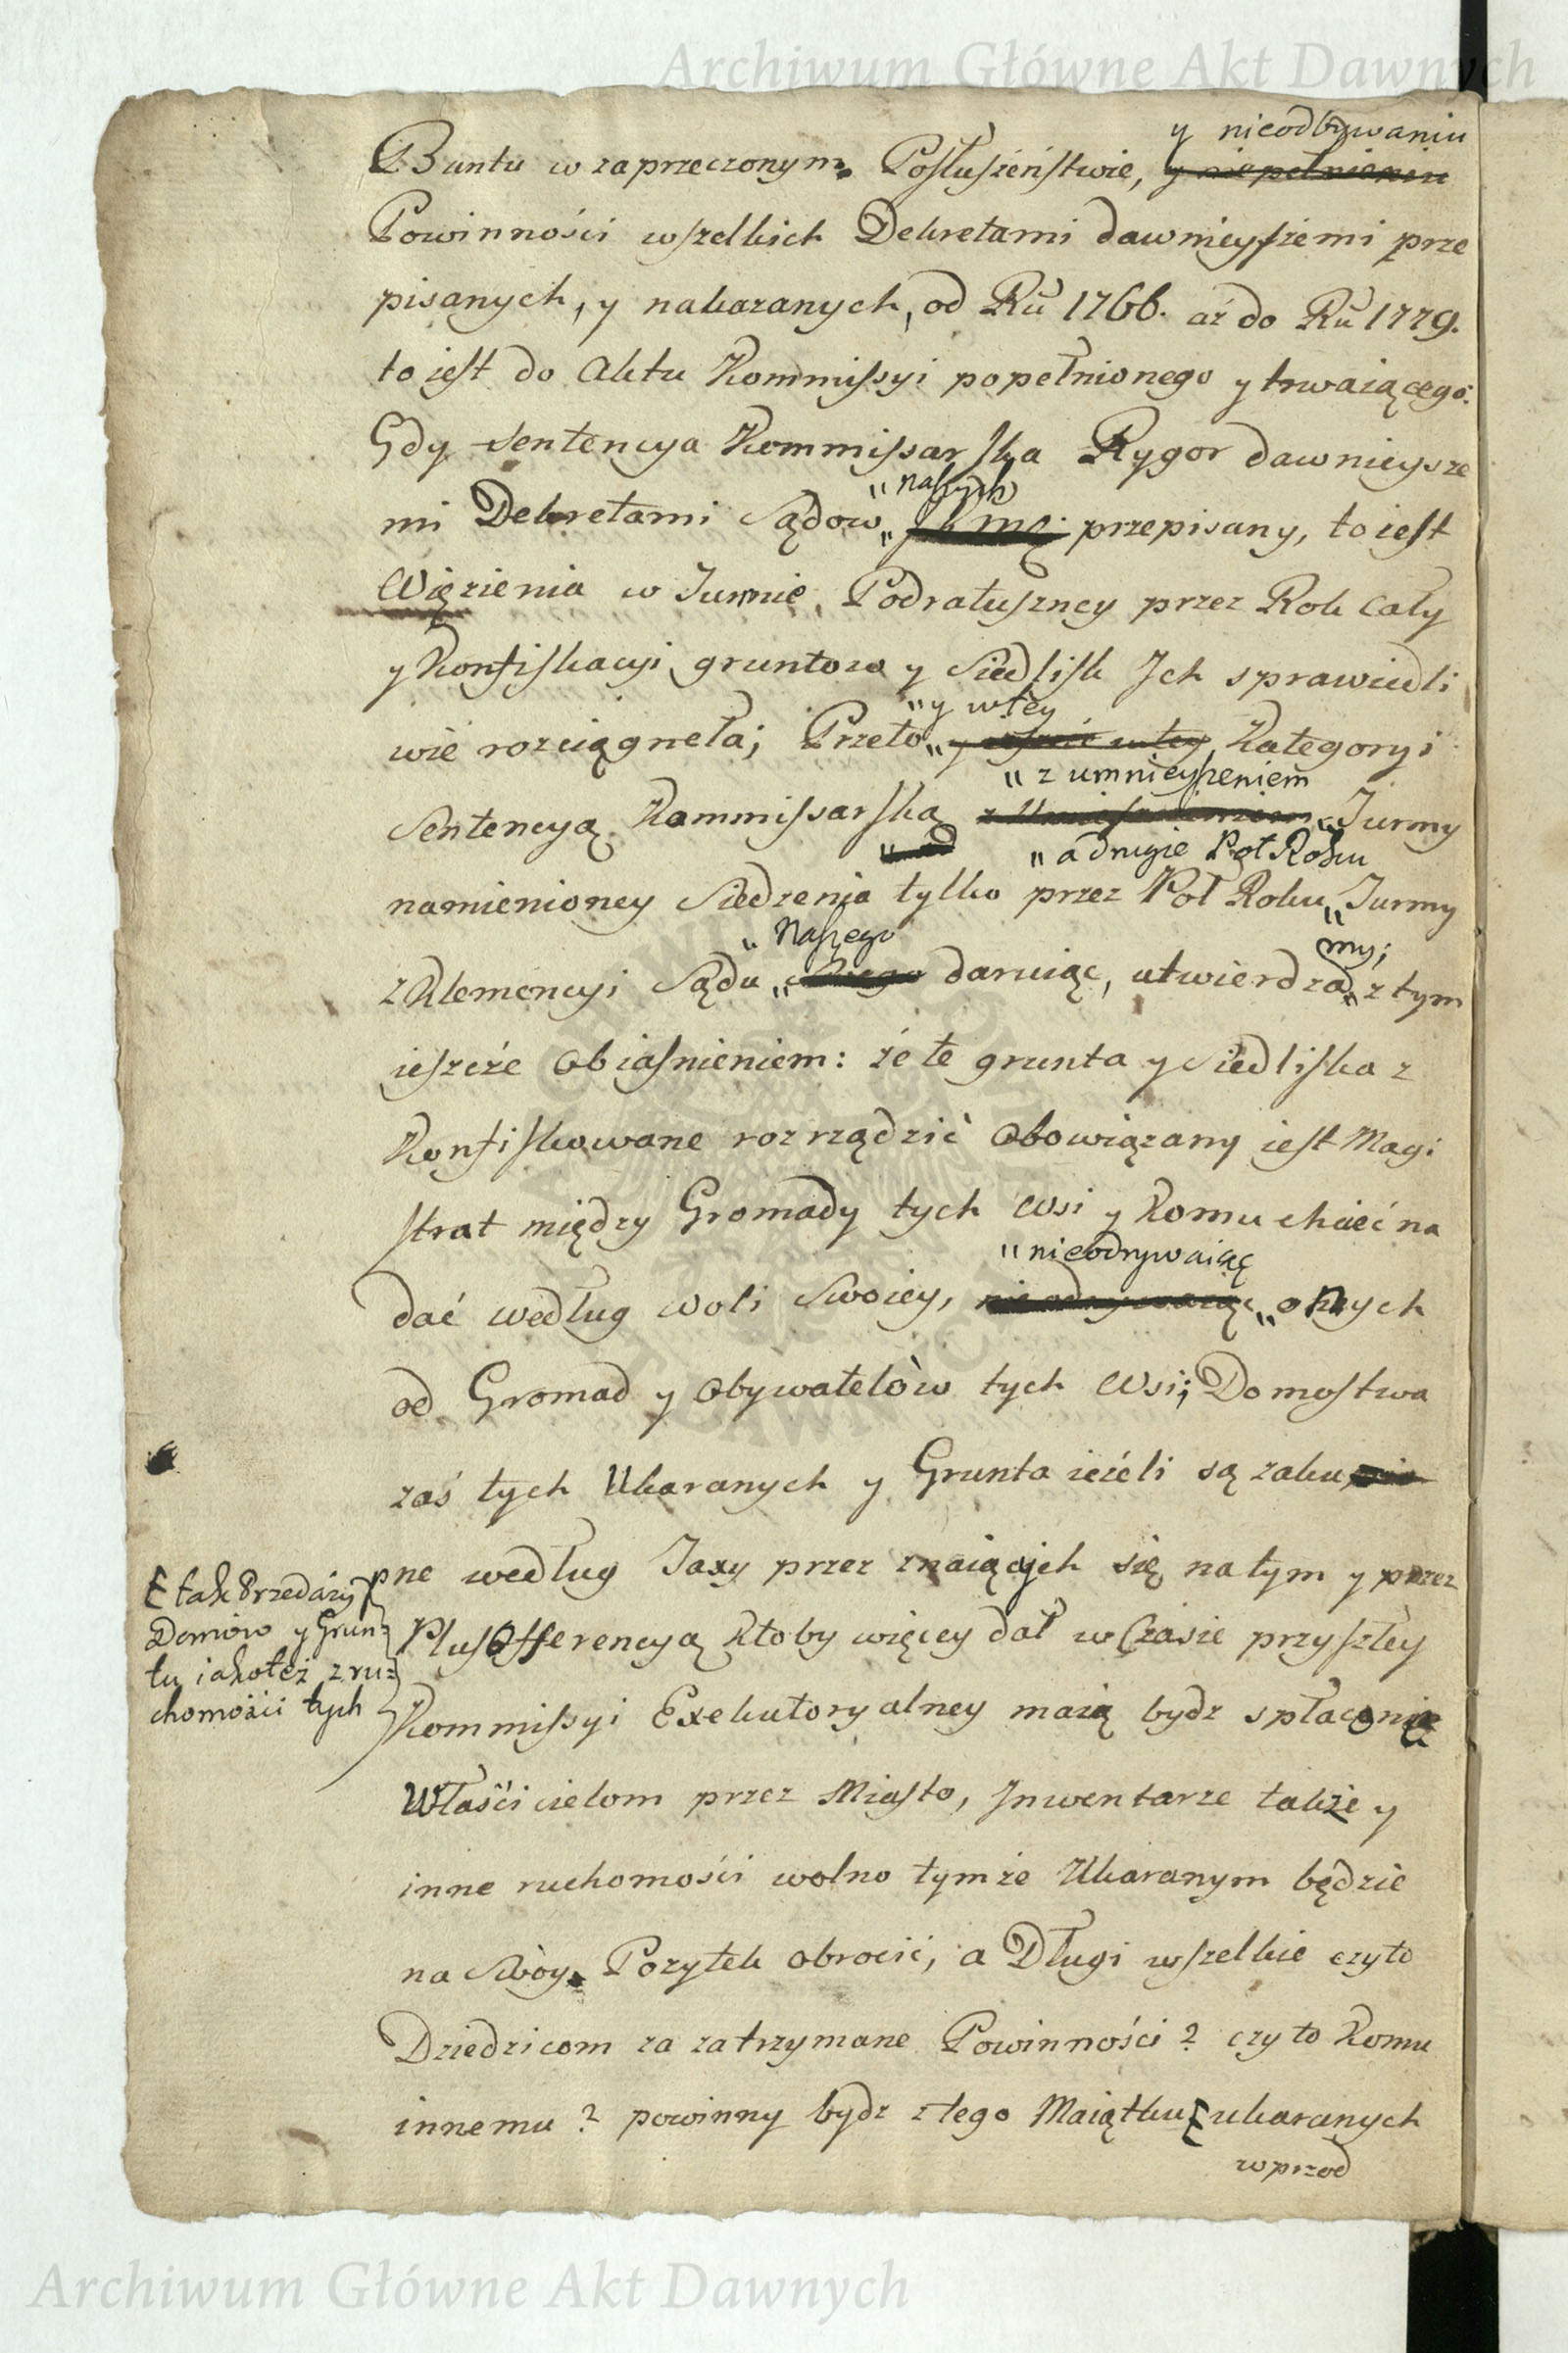 Archiwum Główne Akt Dawnych
y nieodbywaniu
Buntu w zaprzeczonym Posłuszeństwie, y niepełnieniu
Powinności wszelkich Dekretami dawnieyszemi prze
pisanych, y nakazanych, od Rũ 1766. aż do Rũ 1779.
to iest do Aktu Kommissyi popełnionego y trwaiącego.
Gdy Sentencya Kommissarska Rygor dawnieysze
"naszych
mi Dekretami Sądow" przepisany, to iest
Więzienia w Turmie Podratuszney przez Rok Cały
y Konfiskacyi gruntow y Siedlisk Jch sprawiedli
"y wtey
wie rozciągneła; Przeto" Kategoryi
"z umnieyszeniem
Sentencyą Kommissarską "Turmy
"a drugie Poł Roku
namienioney Siedzenia tylko przez Poł Roku" Turmy
"Naszego my;
z Klemencyi Sądu" Swego daruiąc, utwierdza" z tym
ieszcze Obiaśnieniem: że te grunta y Siedliska z
Konfiskowane rozrządzić Obowiązany iest Magi
strat między Gromady tych Wsi y Komu chcieć na
"nieodrywaiąc
dać według woli Swoiey, nieodrywaiąc" onych
od Gromad y Obywatelòw tych Wsi; Domostwa
zaś tych Ukaranych y Grunta ieżeli są zaku
pne według Taxy przez znaiących się na tym y przez
Plus Offerencyą Ktoby więcey dał w Czasie przyszłey
Kommissyi Exekutoryalney maią bydz spłacone
Właścicielom przez Miasto, Jnwentarze także y
inne ruchomości wolno tymże Ukaranym będzie
na Swòy Pozytek obrocić, a Długi wszelkie czyto
Dziedzicom za zatrzymane Powinności? czy to Komu
innemu? powinny bydz z tego Maiątku ukaranych
wprzod
tak Przedaży
Domòw y Grun=
tu iakoteż z ru=
chomości tych
Archiwum Główne Akt Dawnych